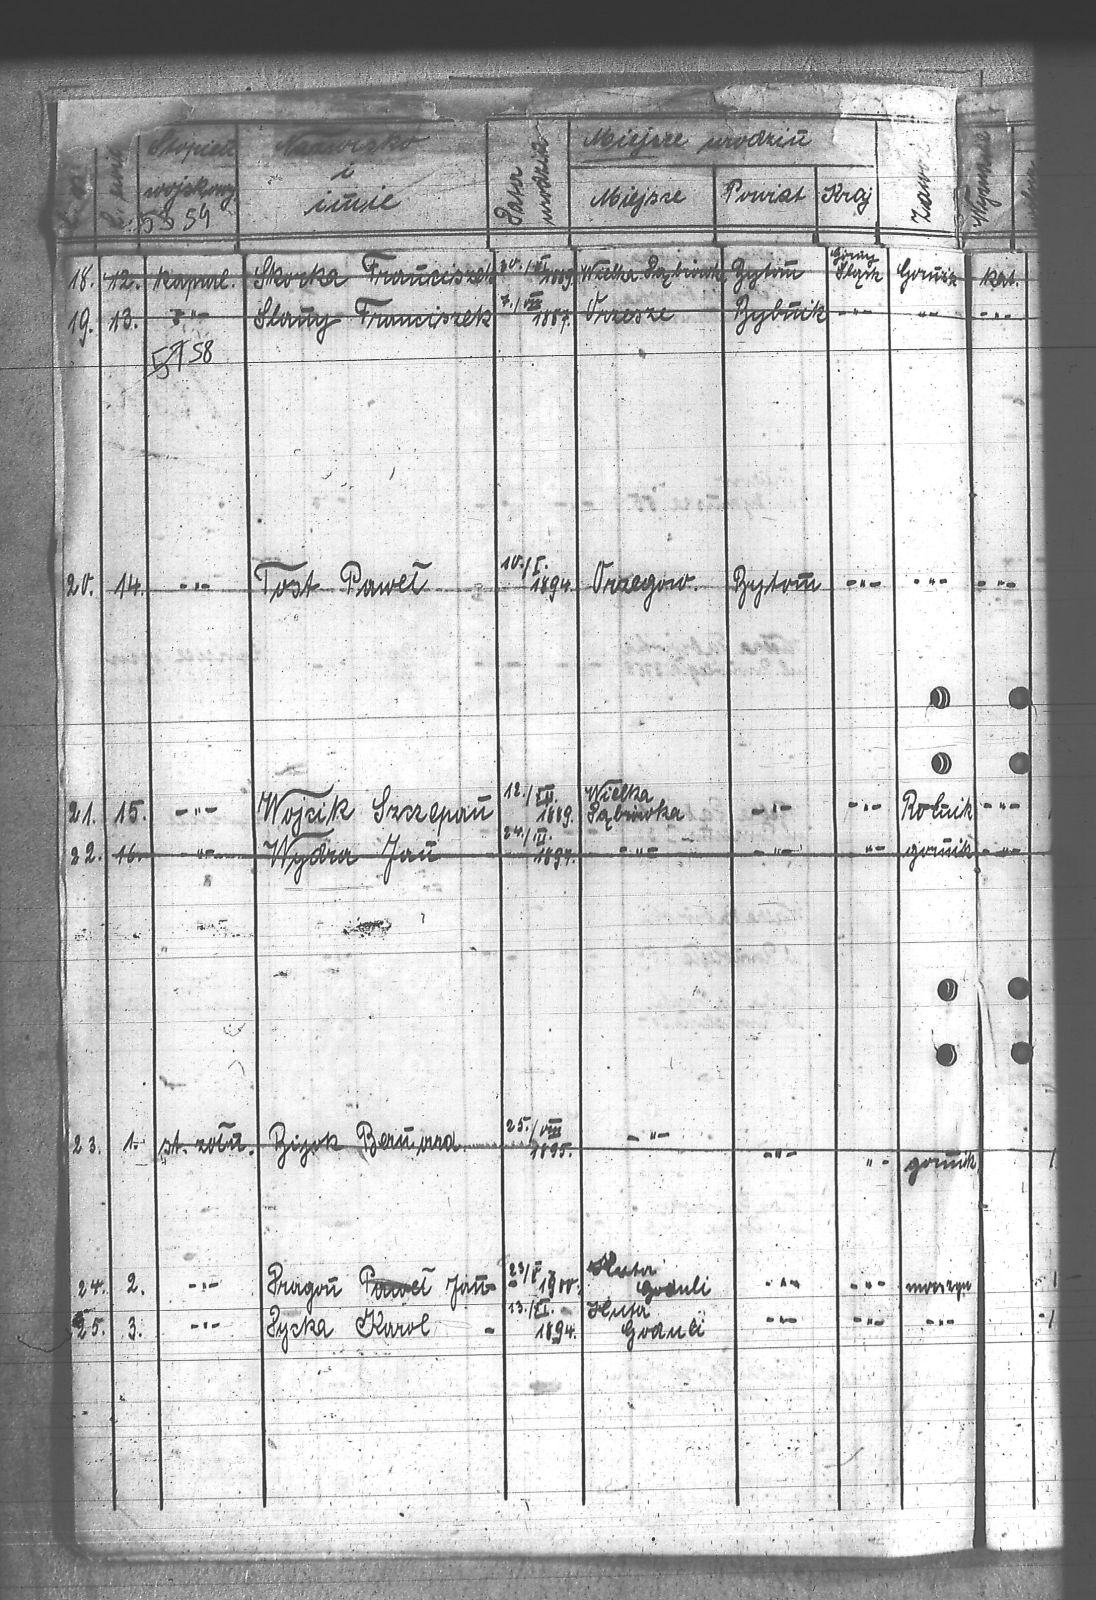 Stopień wojskowy Nazwisko i imie Data urodzin Miejsce urodziń
Miejsce Powiat Kraj
18. 12. Kapral. Skorka Franciszek 1889. Wielka Dąbrówk. Bytom Górny Śląsk Gornik kat.
19. 13. -"- Slany Franciszek 7./VIII 1887. Orzesze Rybnik -"- -"- -"-
20. 14. -"- Tost Paweł 10./I. 1894. Orzegow. Bytom -"- -"- -"-
21. 15. -"- Wojcik Szczepan 12./XII. 1889. Wielka Dąbrówka -"- -"- Rolnik -"-
22. 16. -"- Wydra Jan 24./III. 1894. -"- -"- -"- gornik -"-
23. 1. st. żołn. Bernard 25./VIII 1895. -"- -"- -"- gornik
24. 2. -"- Dragon Paweł Jan 23/V 1900. Huta Goduli -"- -"-
25. 3. -"- Karol 13./XI. 1894. Huta Goduli -"- -"- -"-